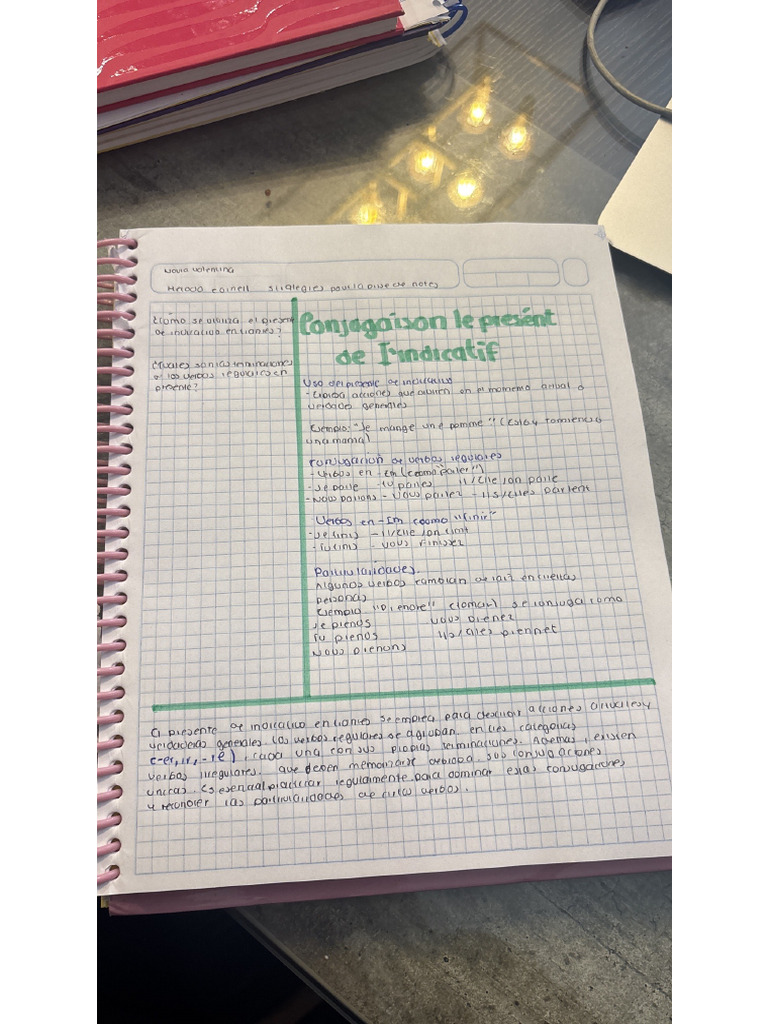 Maria Valentina
Metodo cornell strategies pour la prise de notes
¿Cómo se utiliza el presente
de indicativo en francés?
¿Cuales son las terminaciones
de los verbos regulares en
presente?
Conjugaison le présent
de I'indicatif
Uso del presente de indicativo
- Expresa acciones que ocurren en el momento actual o
verdades generales
Ejemplo: "Je mange une pomme" (Estoy comiendo
una manzana)
Conjugación de verbos regulares
- Verbos en -Em (como "Parler")
- Je parle - Tu parles Il/elle/on parle
- Nous parlons - Vous parlez - Ils/elles parlent
Verbos en -Im (como "finir"
- Je finis - il/elle/on finit
- Tu finis - Vous finissez
Particularidades.
Algunos verbos cambian de raíz en ciertas
personas
Ejemplo "Prendre" (Tomar) se conjuga como
Je prends Vous prenez
Tu prends Ils/elles prennet
Nous prenons
El presente de indicativo en francés se emplea para describir acciones actuales y
verdades generales los verbos regulares se agrupan en tres categorias
(-er, ir, -re), cada una con sus propias terminaciones. Además, existen
verbos irregulares. que deben memorizarse debido a sus conjugaciones
unicas. Es esencial practicar regularmente para dominar estas conjugaciones
y reconocer las particularidades de ciertos verbos.